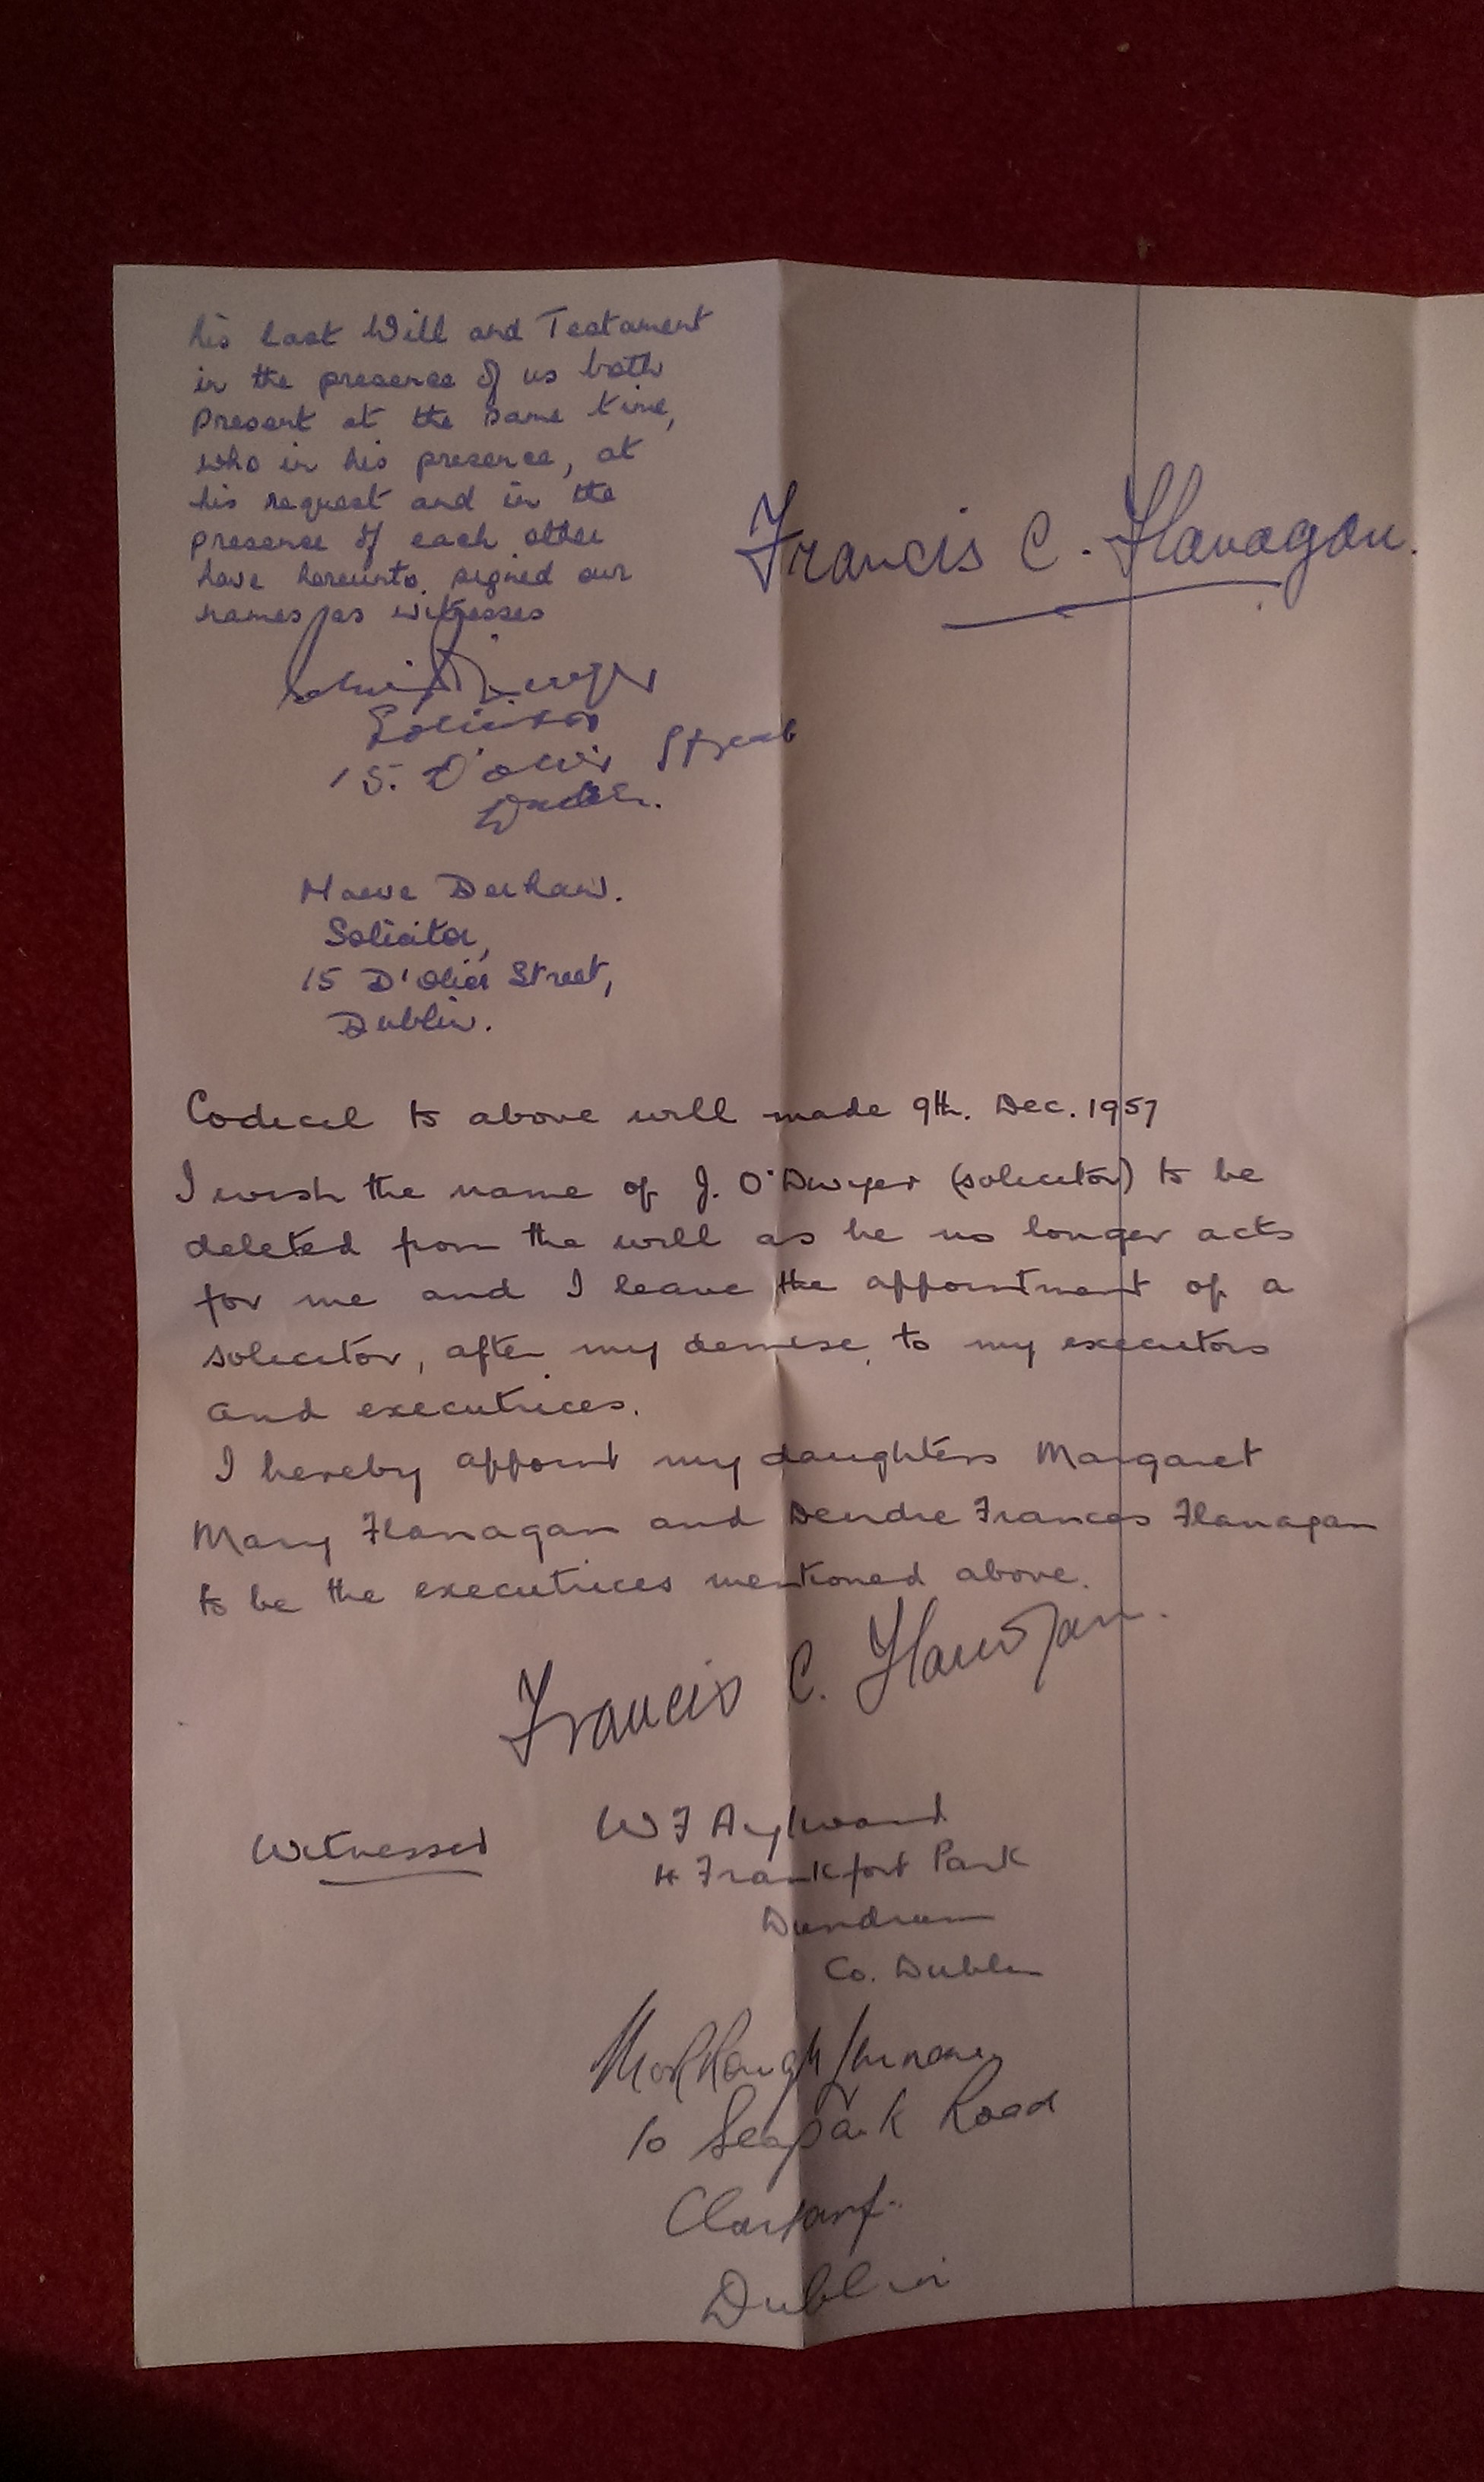 his Last Will and Testament
in the presence of us both
present at the same time,
who in his presence, at
his request and in the
presence of each other
have hereunto signed our
names as witnesses
Francis C. Flanagan.
Solicitor
15. D'Olier Street
Dublin.
Maeve
Solicitor,
15 D'Olier Street,
Dublin.
Codecil to above will made 9th. Dec. 1957
I wish the name of J. O'Dwyer (solicitor) to be
deleted from the will as he no longer acts
for me and I leave the appointment of a
solicitor, after my demise, to my executors
and executrices.
I hereby appoint my daughters Margaret
Mary Flanagan and Deirdre Frances Flanagan
to be the executrices mentioned above.
Francis C. Flanagan.
Witnessed
W F Aylward
4 Frankfort Park
Dundrum
Co. Dublin
10 Seapark Road
Clontarf.
Dublin